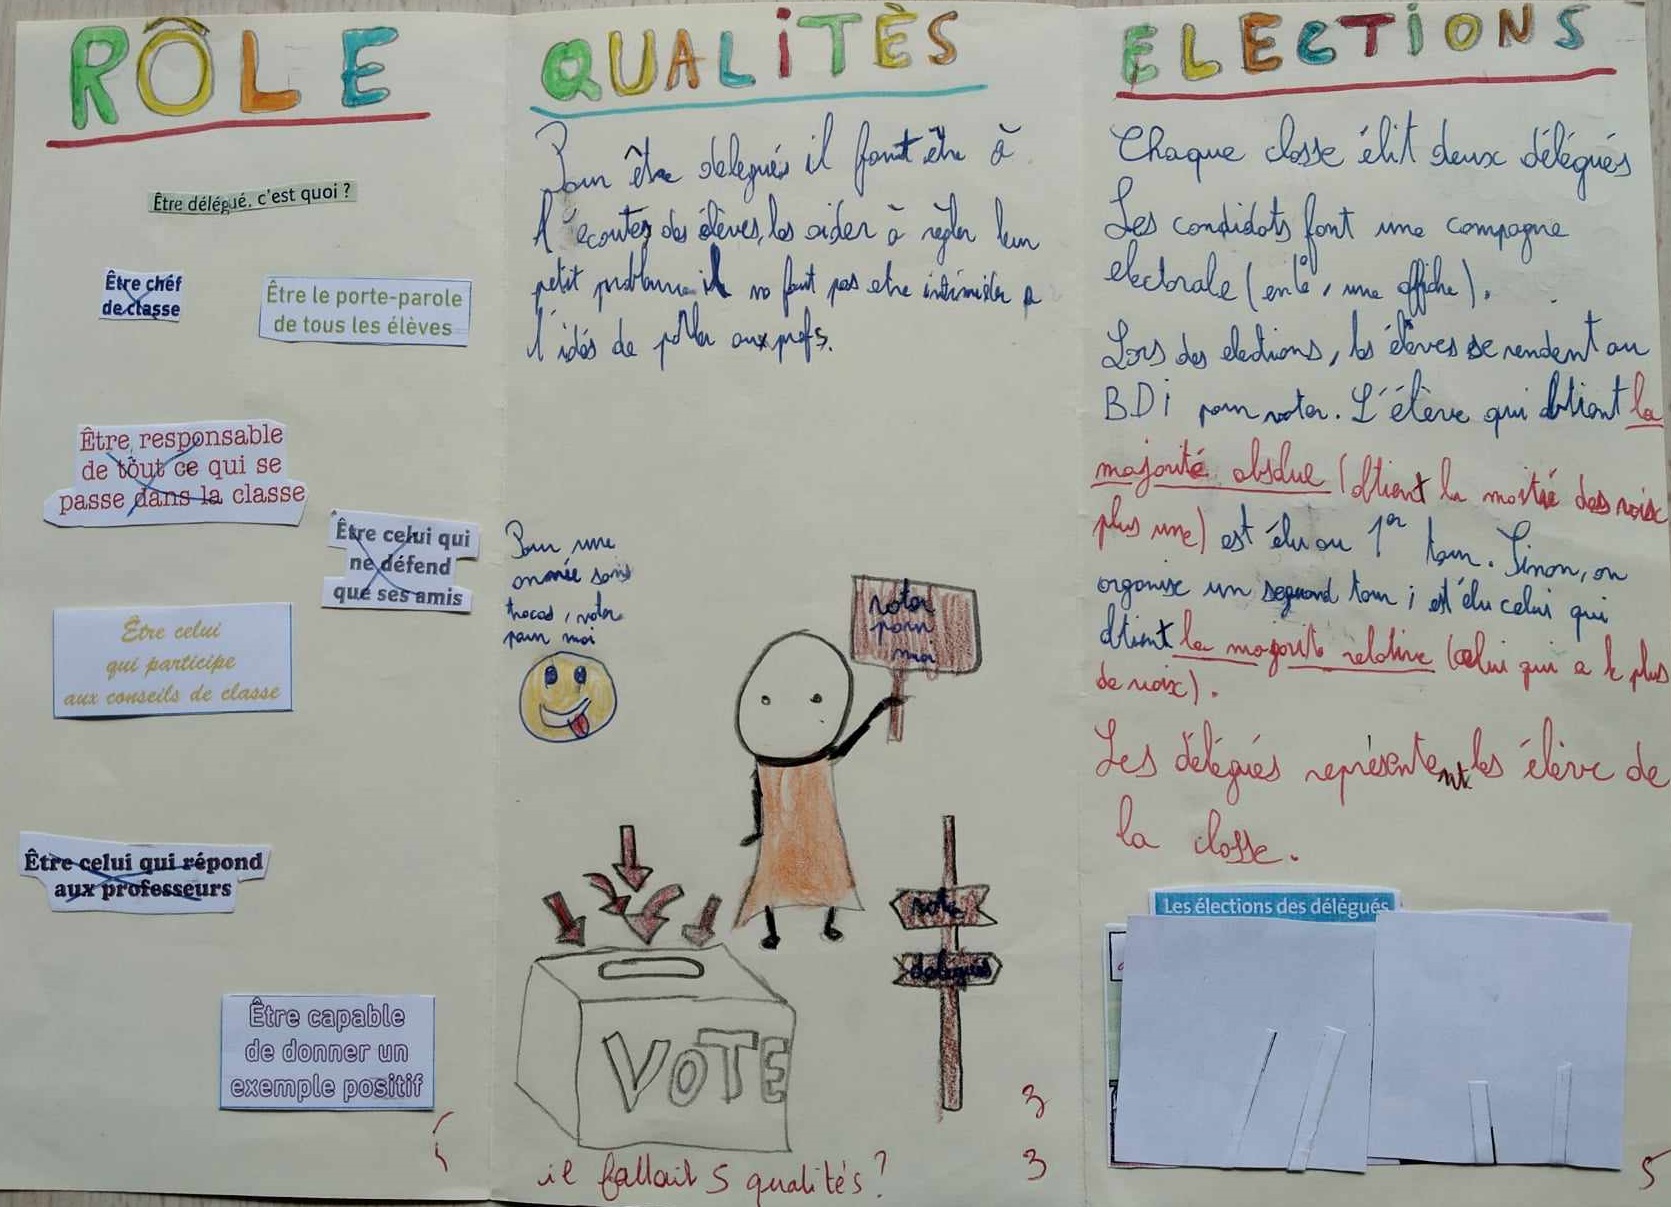 RÔLE
Être délégué, c'est quoi ?
Être chef
de classe
Être le porte-parole
de tous les élèves
Être responsable
de tout ce qui se
passe dans la classe
Être celui qui
ne défend
que ses amis
Être celui
qui participe
aux conseils de classe
Être celui qui répond
aux professeurs
Être capable
de donner un
exemple positif
5
QUALITÈS
Pour être delegués il faut être à
l'écoutes des élèves, les aider à règler leur
petit problème il ne faut pas etre intimider a
l'idés de parler aux profs.
Pour une
année sans
tracas, voter
pour moi
voter
pour
moi
vote
delegués
VOTE
3
3
il fallait 5 qualités ?
ELECTIONS
Chaque classe élit deux délégués
Les candidats font une campagne
electorale (             , une affiche).
Lors des elections, les élèves se rendent au
BDi pour voter. L'élève qui obtient la
majorité absolue (obtient la moitié des voix
plus une) est élu au 1er tour. Sinon, on
organise un segond tour ; est élu celui qui
obtient la majorité relative (celui qui a le plus
de voix).
Les délégués représentent les élève de
la classe.
Les élections des délégués
5